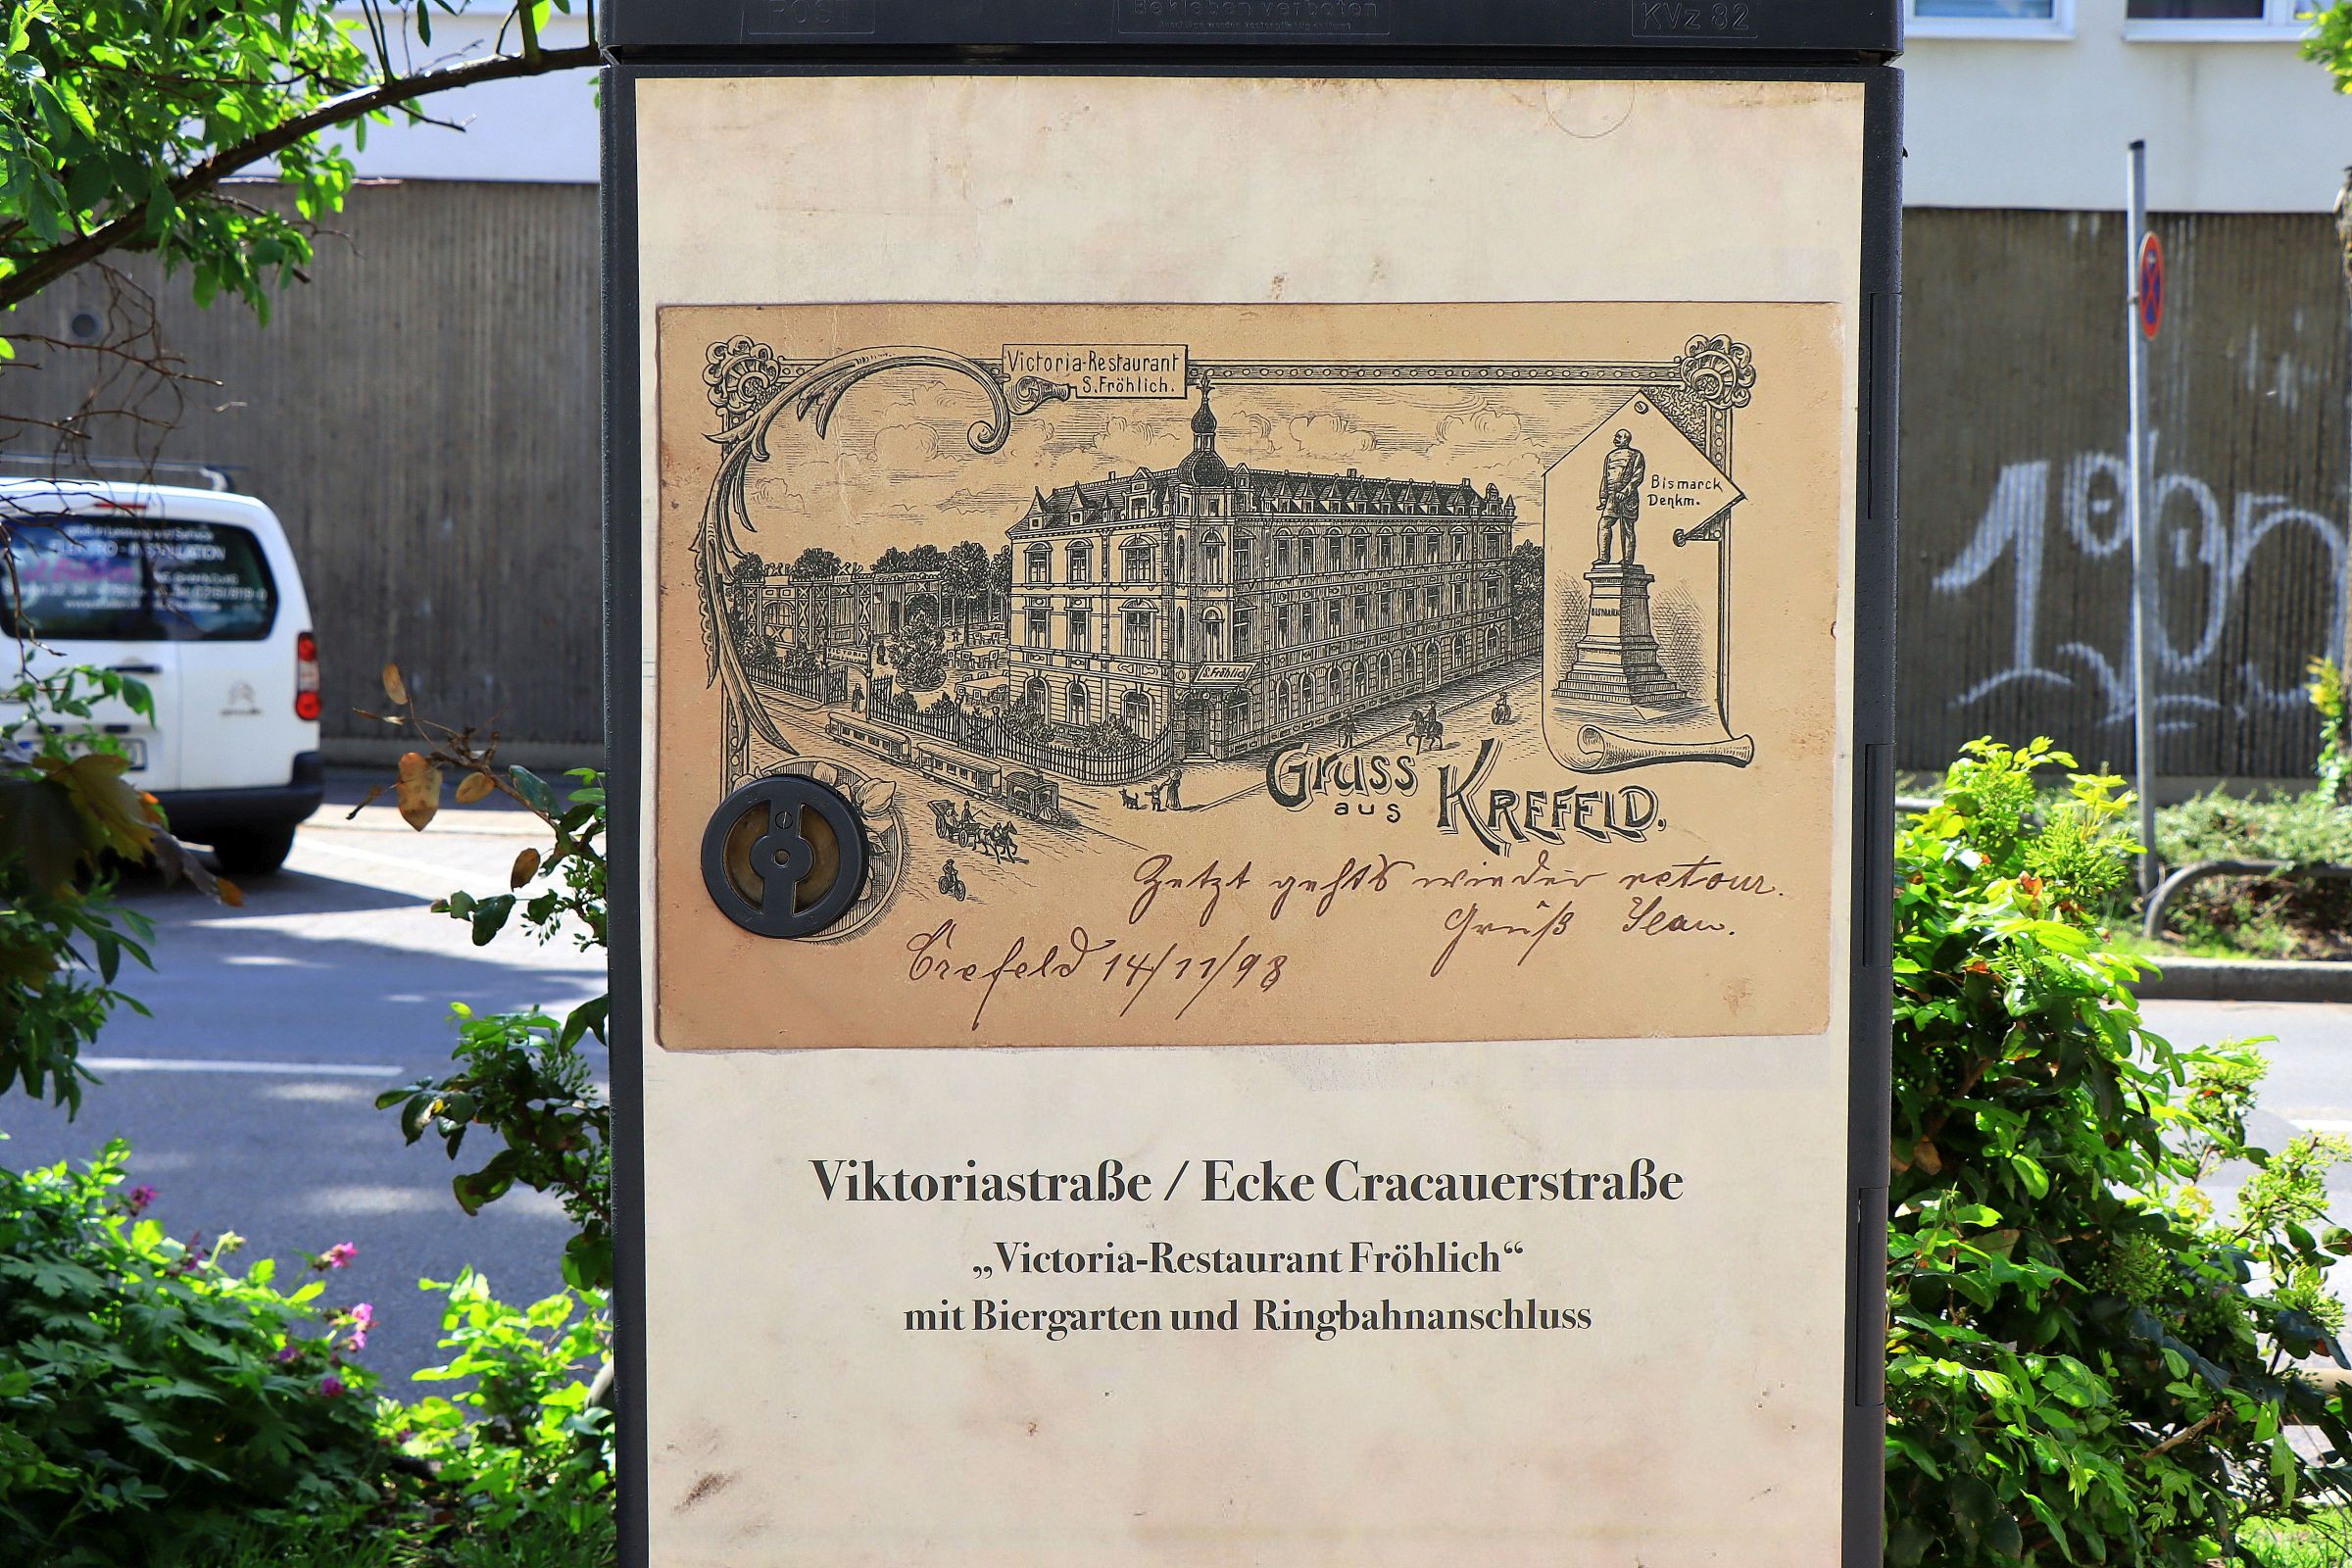 POST
Bekleben verboten
KVz 82
Victoria-Restaurant
S. Fröhlich.
Bismarck
Denkm.
BISMARCK
S. Fröhlich
Gruss
aus
KREFELD.
Jetzt gehts wieder retour.
Gruß Jean.
Crefeld 14/11/98
Viktoriastraße / Ecke Cracauerstraße
„Victoria-Restaurant Fröhlich“
mit Biergarten und Ringbahnanschluss
ELEKTRO - INSTALLATION